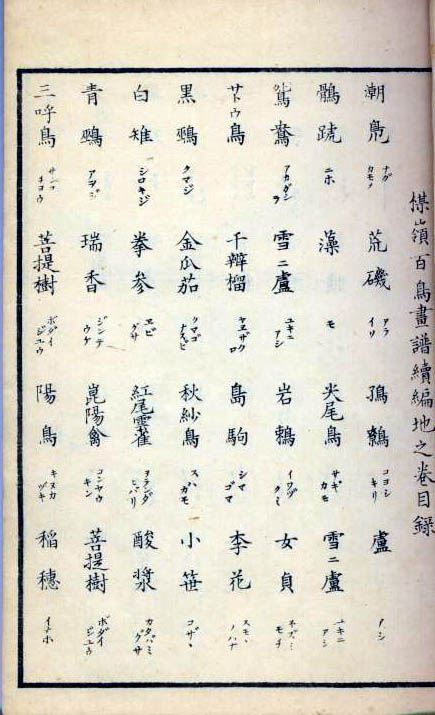 楳嶺百鳥畫譜續編地之卷目録
潮鳧 ナダカモメ 荒磯 アライソ 鶸鶺 コヨシキリ 蘆 アシ
鶻䟽 ニホ 藻 モ 尖尾鳥 サギカモ 雪ニ蘆 ユキニアシ
鴷 アカゲラ 雪ニ蘆 ユキニアシ 岩鶫 イワツグミ 女貞 ネズミモチ
サトウ鳥 千瓣榴 ヤエザクロ 島駒 シマゴマ 李花 スモヽノハナ
黒鵐 クマジ 金瓜茄 クマゴナスビ 秋紗鳥 スヾガモ 小笹 コザヽ
白雉 シロキジ 拳参 エビグサ 紅尾雲雀 ヲランダヒバリ 酸漿 カタバミグサ
青鵐 アヲジ 瑞香 ジンテウケ 崑陽禽 コンヤウキン 菩提樹 ボダイジユウ
三呼鳥 サンコキヨウ 菩提樹 ボダイジユウ 陽鳥 キヌカヅキ 稲穂 イナホ